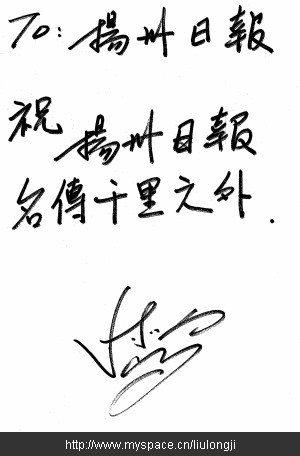 To: 揚州日報
祝
揚州日報
名傳千里之外.
http://www.myspace.cn/liulongji